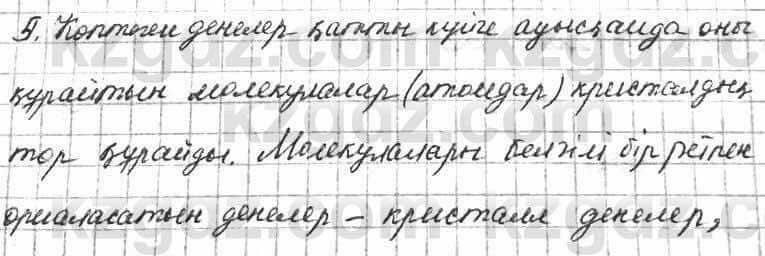 5. Көптеген денелер қатты күйге ауысқанда оны
құрайтын молекулалар (атомдар) кристалдық
тор құрайды. Молекулалары белгілі бір ретпен
орналасатын денелер – кристалл денелер,
kzgdz.com